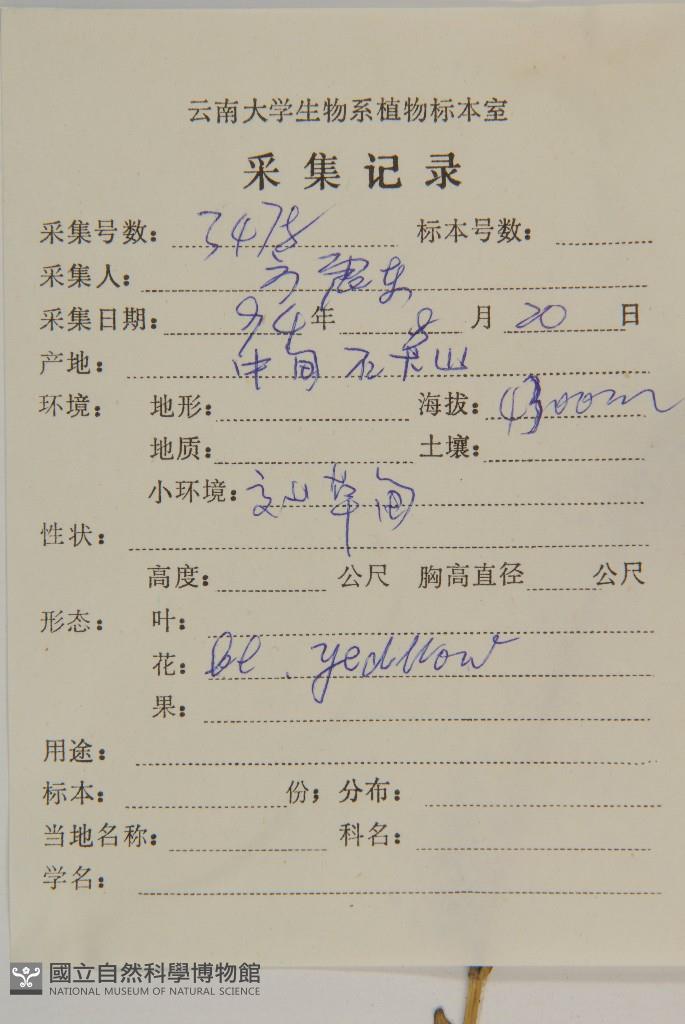 云南大学生物系植物标本室
采集记录
采集号数： 3478 标本号数：
采集人： 方震东
采集日期： 94 年 8 月 20 日
产地： 中甸 石卡山
环境： 地形： 海拔： 4300m
地质： 土壤：
小环境： 高山草甸
性状：
高度： 公尺 胸高直径 公尺
形态： 叶：
花： yedllow
果：
用途：
标本： 份； 分布：
当地名称： 科名：
学名：
國立自然科學博物館
NATIONAL MUSEUM OF NATURAL SCIENCE